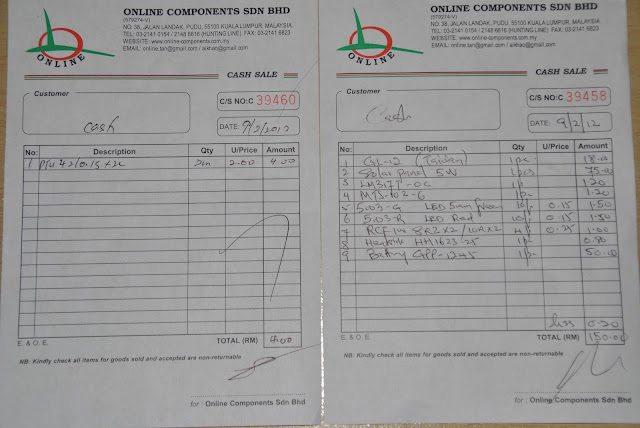 ONLINE
ONLINE COMPONENTS SDN BHD
(579274-V)
NO: 38, JALAN LANDAK, PUDU, 55100 KUALA LUMPUR, MALAYSIA.
TEL: 03-2141 5154 / 2148 6616 (HUNTING LINE) FAX: 03-2141 6823
WEBSITE: www.online-components.com.my
EMAIL: online.tan@gmail.com / aikhao@gmail.com
CASH SALE
Customer
cash
C/S NO:C 39460
DATE: 9/2/2012
No: Description Qty U/Price Amount
1 2m 2.00 4.00
E. & O.E. TOTAL (RM) 4.00
NB: Kindly check all items for goods sold and accepted are non-returnable
for : Online Components Sdn Bhd
ONLINE
ONLINE COMPONENTS SDN BHD
(579274-V)
NO: 38, JALAN LANDAK, PUDU, 55100 KUALA LUMPUR, MALAYSIA.
TEL: 03-2141 5154 / 2148 6616 (HUNTING LINE) FAX: 03-2141 6823
WEBSITE: www.online-components.com.my
EMAIL: online.tan@gmail.com / aikhao@gmail.com
CASH SALE
Customer
Cash
C/S NO:C 39458
DATE: 9/2/12
No: Description Qty U/Price Amount
1 GL-12 (Taiwan) 1pc 18.00
2 Solar panel 5W 1pcs 75.00
3 LM317T-OC 1p 1.20
4 MTS-102-6 1pc 1.20
5 5.03-G LED 5mm Green 10p 0.15 1.50
6 5.03-R LED Red 10p 0.15 1.50
7 RCF 1W 8R2X2/10RX2 4p 0.25 1.00
8 Heatsink HM1623/25 1p 0.80
9 Battery GPP-1245 1p 50.00
less 0.20
E. & O.E. TOTAL (RM) 150.00
NB: Kindly check all items for goods sold and accepted are non-returnable
for : Online Components Sdn Bhd